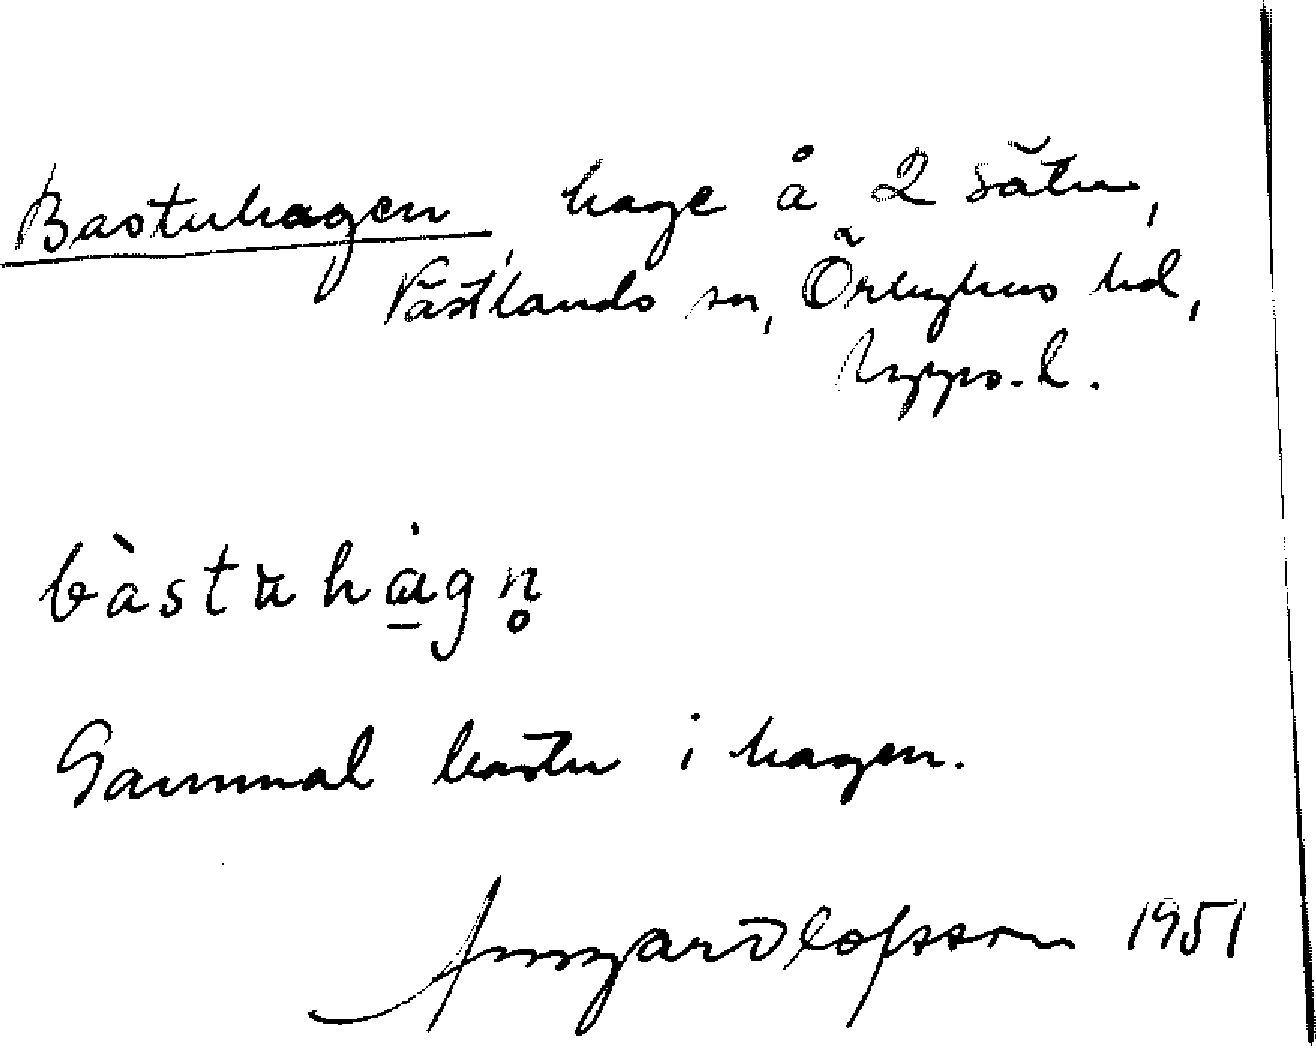 Bastuhagen, hage å 2 Sätra,
Västlands sn, Örbyhus hd,
Upps. l.
bàstuhȧgn̥
Gammal bastu i hagen.
Olofsson 1951